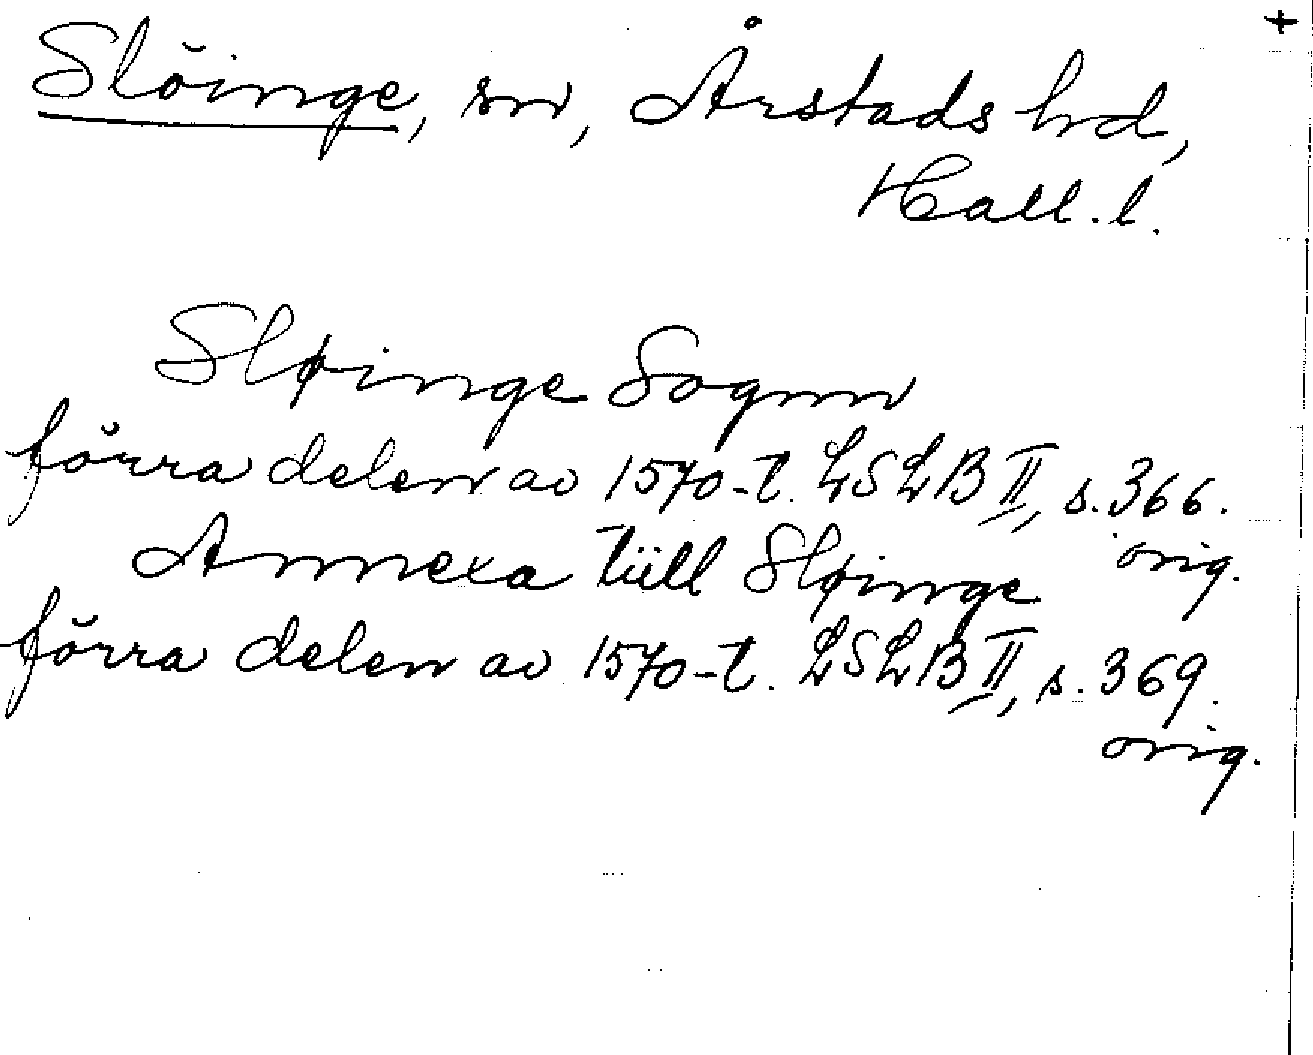 +
Slöinge, sn, Årstads hd,
Hall. l.
Sløinge Sognn
förra delen av 1570-t. LSLB II, s. 366.
orig.
Annexa tiill Sløinge
förra delen av 1570-t. LSLB II, s. 369.
orig.